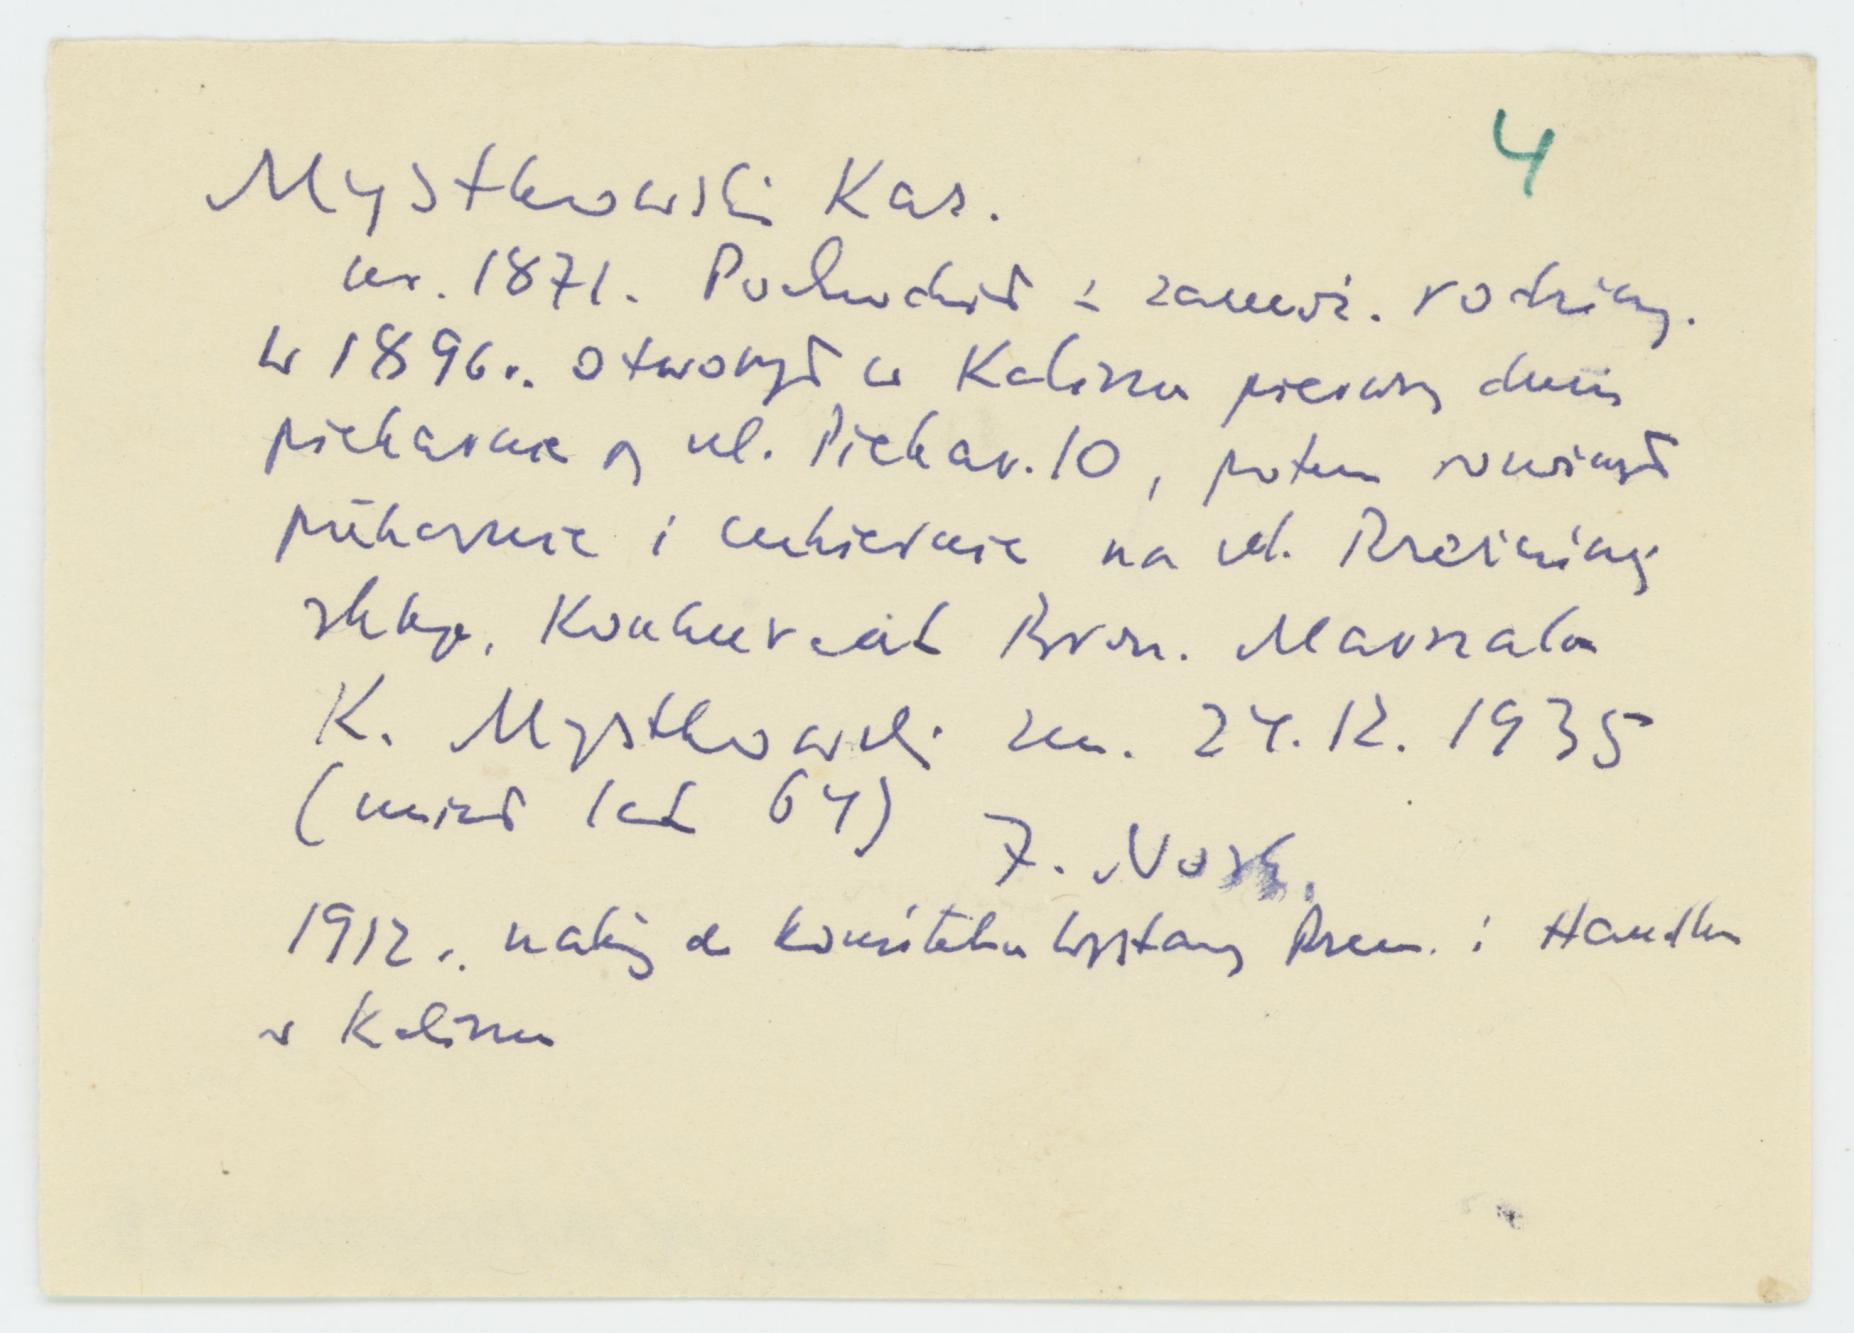 4
Mystkowski Kaz.
ur. 1871. Pochodził z zamoż. rodziny.
W 1896 r. otworzył w Kaliszu pierwszą dużą
piekarnię przy ul. Piekar. 10, potem rozwinął
piekarnie i cukiernie na ul. Śródmiejskiej
sklep. Konkurent Bron. Marszała
K. Mystkowski zm. 24.12.1935
(miał lat 64) J. Nosk.
1912 r. należy do komitetu Wystawy Przem. i Handlu
w Kaliszu